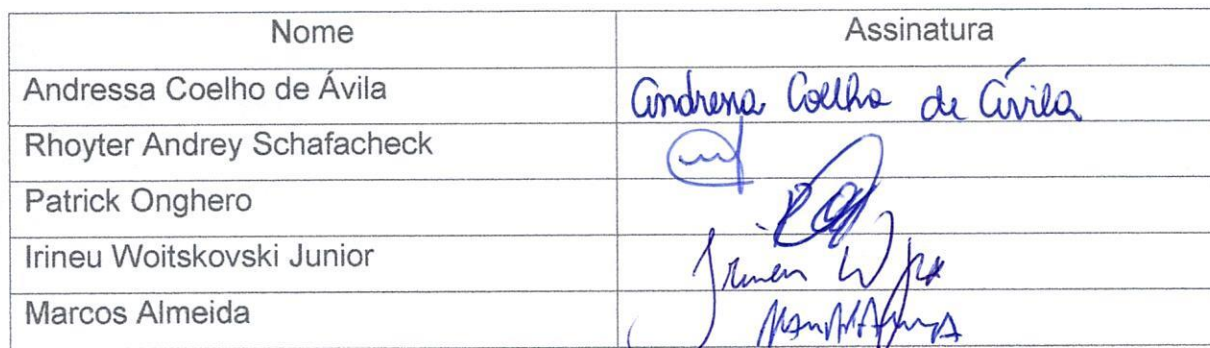 Nome Assinatura
Andressa Coelho de Ávila Andressa Coelho de Ávila
Rhoyter Andrey Schafacheck
Patrick Onghero
Irineu Woitskovski Junior Irineu W Jr
Marcos Almeida